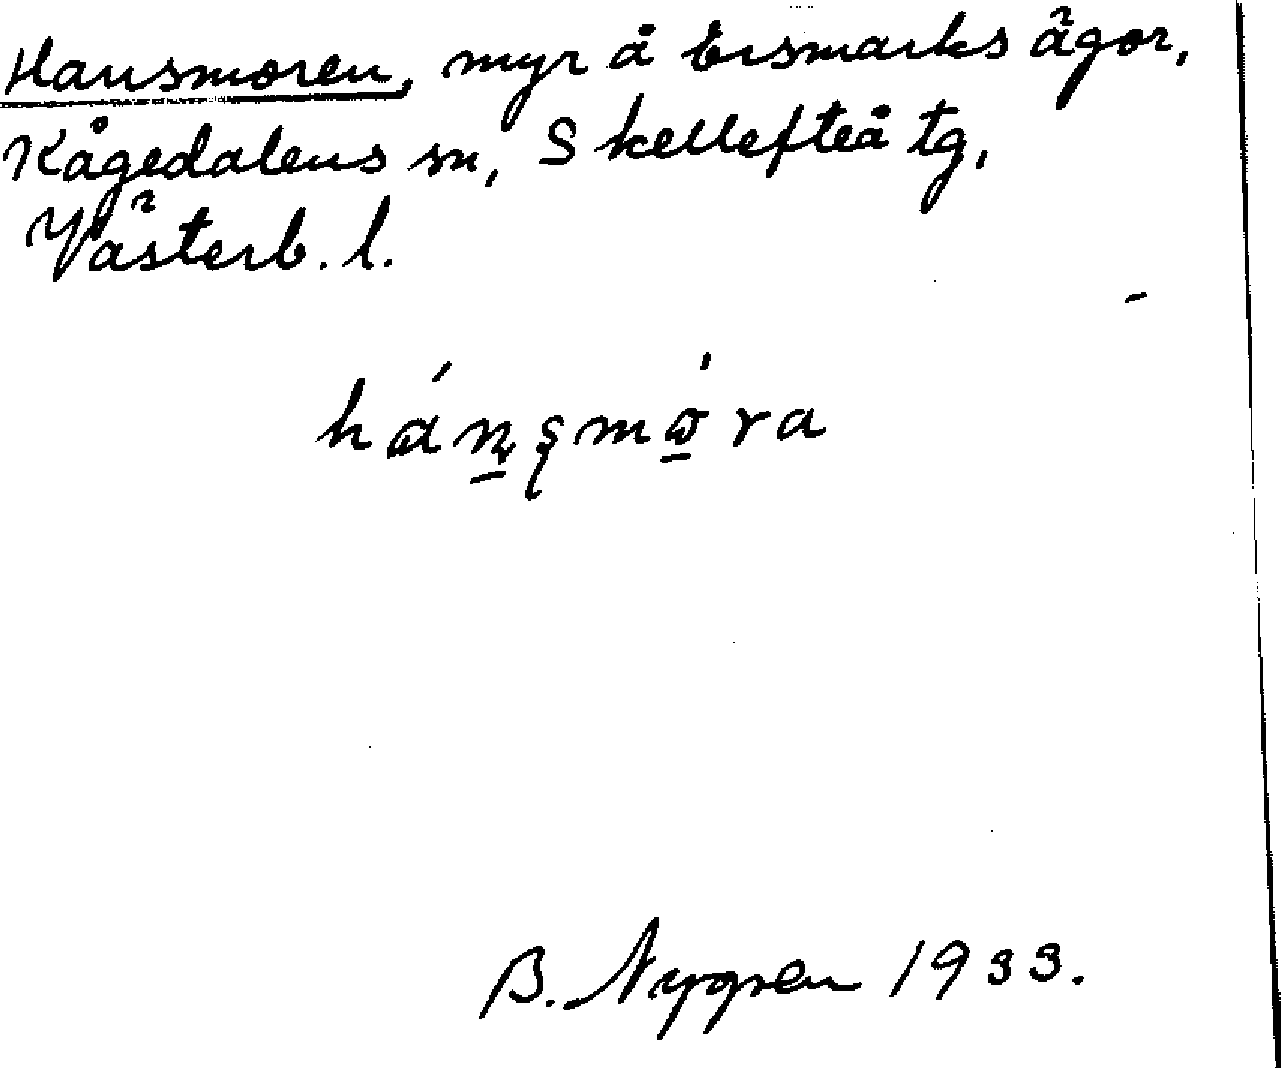 Hansmoren, myr å Ersmarks ägor,
Kågedalens sn, Skellefteå tg,
Västerb. l.
hánsmóra
B. Nygren 1933.